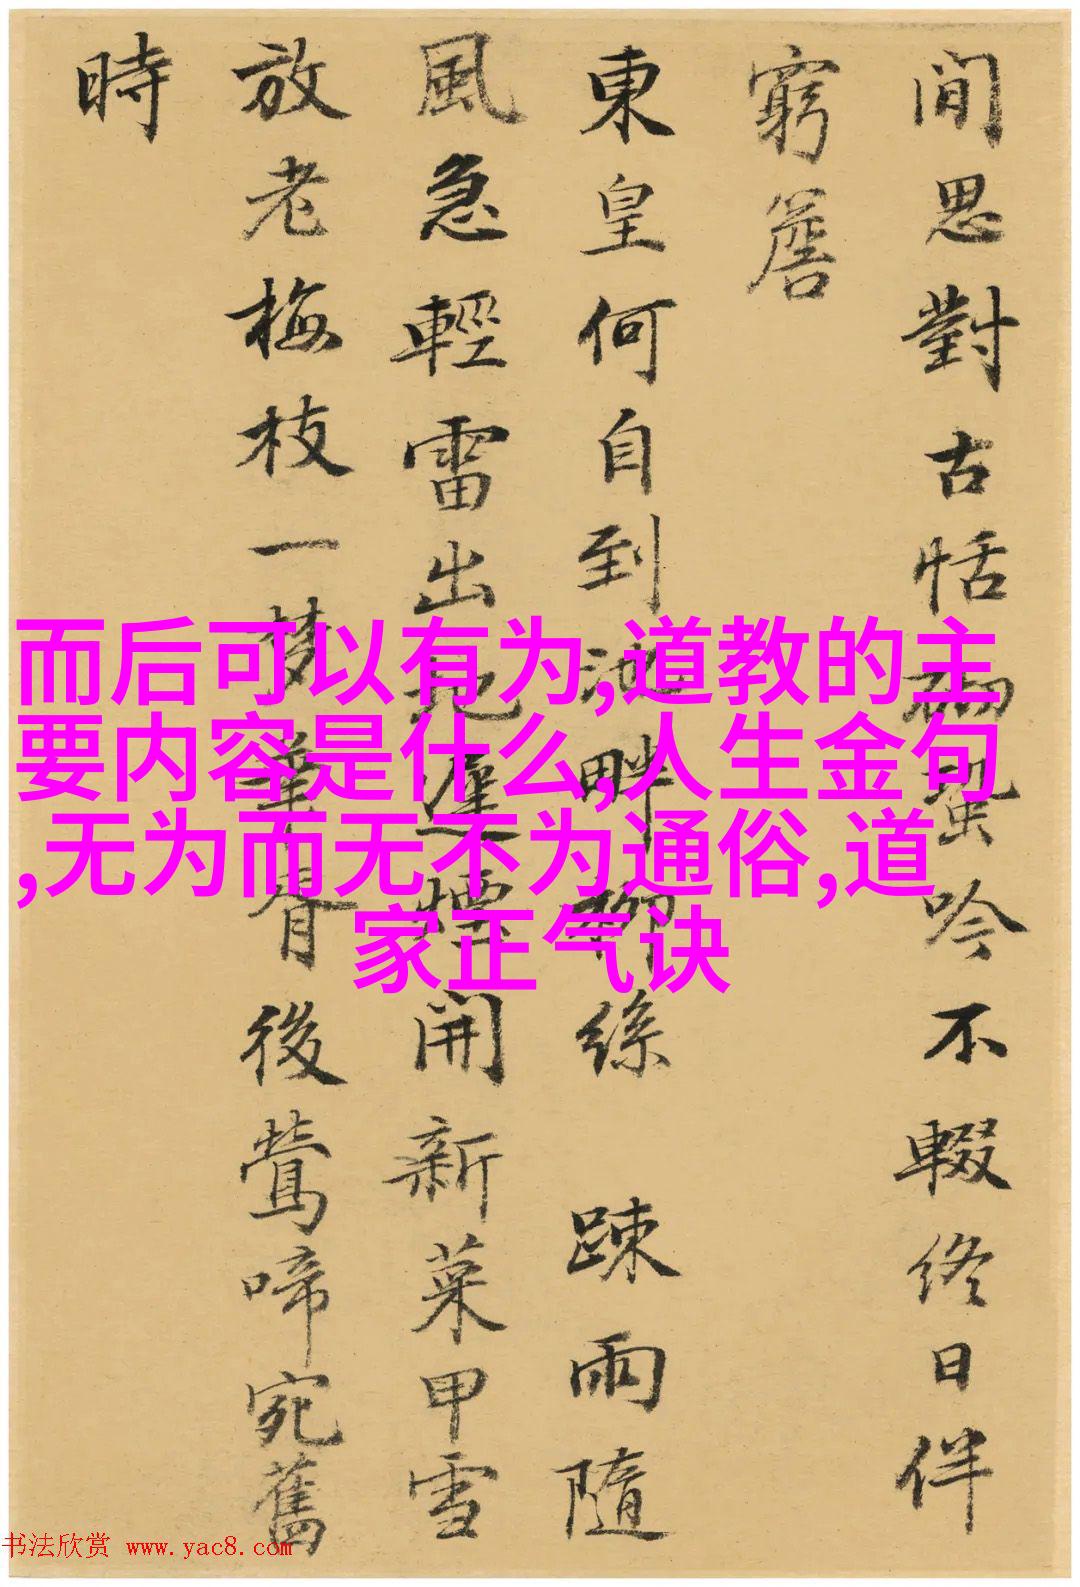 閒思對古恬砌蛩吟不輟終日伴
窮簷
東皇何自到池畔柳絲踈雨隨
風急輕雷出地遲煙開新菜甲雪
放老梅枝一夢華胥後鶯啼宛舊
時
而后可以有为,道教的主
要内容是什么,人生金句
,无为而无不为通俗,道
家正气诀
书法欣赏 www.yac8.com